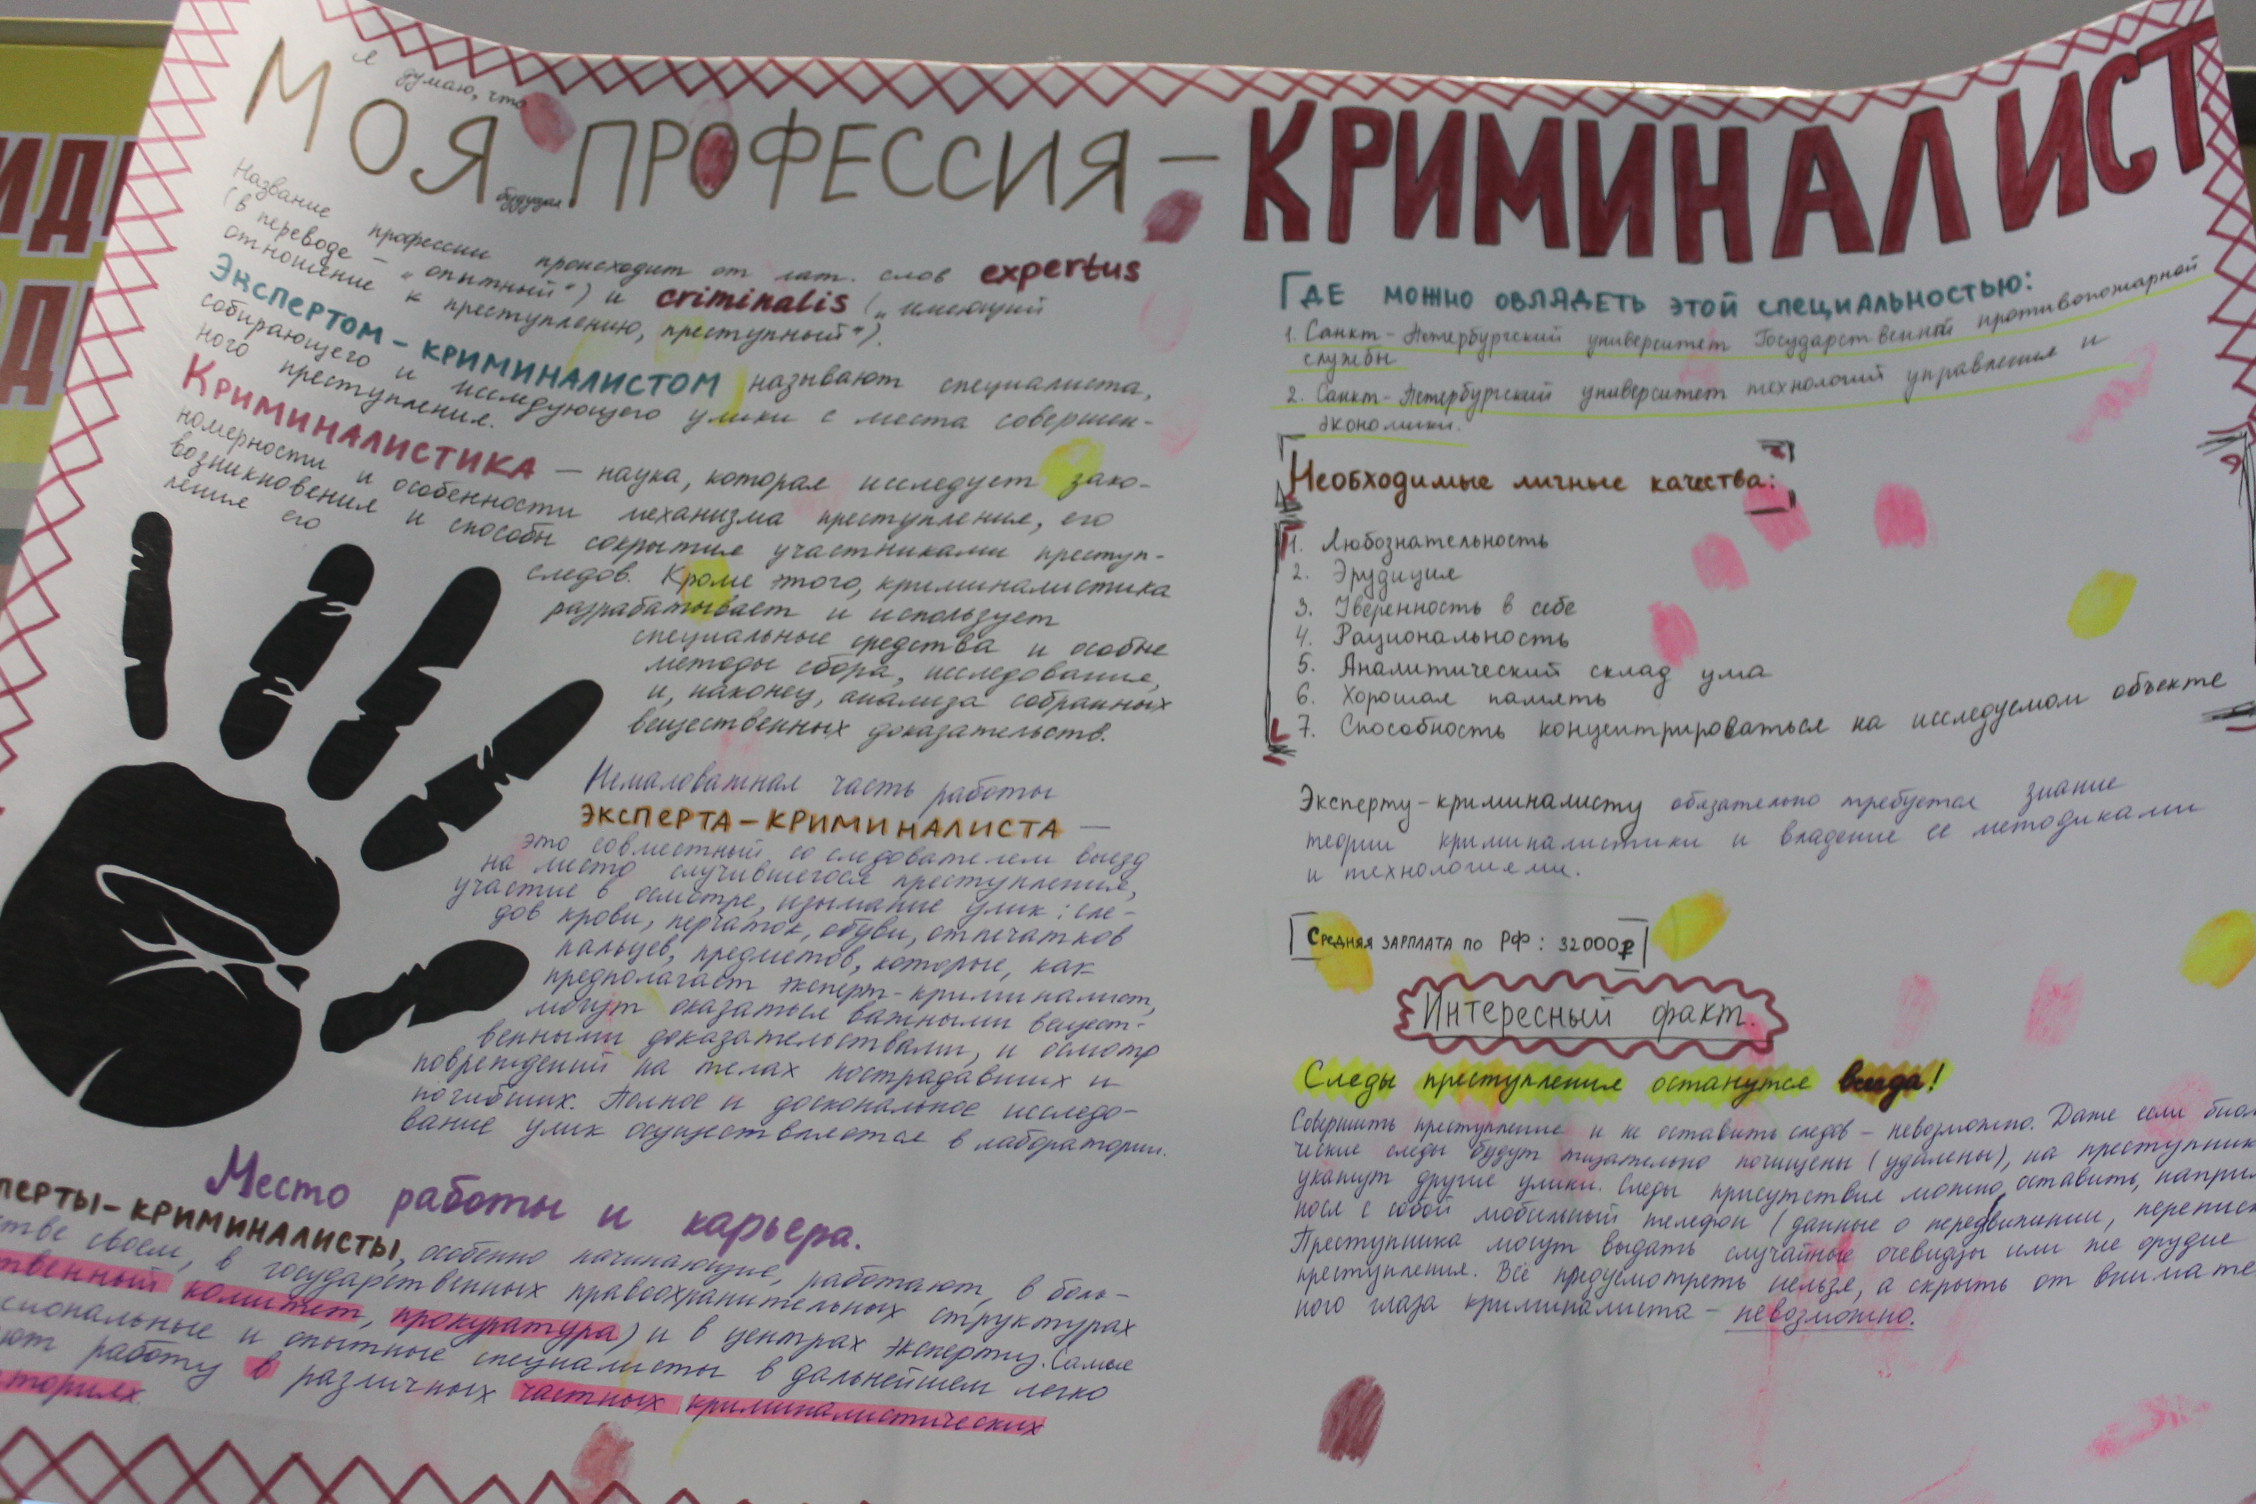 я думаю, что
МОЯ будущая ПРОФЕССИЯ – КРИМИНАЛИСТ
Название профессии происходит от лат. слов expertus
(в переводе – „опытный“) и criminalis („имеющий
отношение к преступлению, преступный“).
Экспертом-криминалистом называют специалиста,
собирающего и исследующего улики с места совершен-
ного преступления.
Криминалистика – наука, которая исследует зако-
номерности и особенности механизма преступления, его
возникновения и способы сокрытия участниками преступ-
ления его следов. Кроме этого, криминалистика
разрабатывает и использует
специальные средства и особые
методы сбора, исследование,
и, наконец, анализа собранных
вещественных доказательств.
Немаловажная часть работы
эксперта-криминалиста –
это совместный со следователем выезд
на место случившегося преступления,
участие в осмотре, изымание улик: сле-
дов крови, перчаток, обуви, отпечатков
пальцев, предметов, которые, как
предполагает эксперт-криминалист,
могут оказаться важными вещест-
венными доказательствами, и осмотр
повреждений на телах пострадавших и
погибших. Полное и доскональное исследо-
вание улик осуществляется в лаборатории.
Место работы и карьера.
перты-криминалисты, особенно начинающие, работают, в боль-
стве своем, в государственных правоохранительных структурах
твенный комитет, прокуратура) и в центрах экспертиз. Самые
сиональные и опытные специалисты в дальнейшем легко
ют работу в различных частных криминалистических
ториях.
Где можно овладеть этой специальностью:
1. Санкт-Петербургский университет Государственной противопожарной
службы
2. Санкт-Петербургский университет технологий управления и
экономики.
Необходимые личные качества:
1. Любознательность
2. Эрудиция
3. Уверенность в себе
4. Рациональность
5. Аналитический склад ума
6. Хорошая память
7. Способность концентрироваться на исследуемом объекте
Эксперту-криминалисту обязательно требуется знание
теории криминалистики и владение ее методиками
и технологиями.
Средняя зарплата по РФ: 32000₽
Интересный факт.
Следы преступления останутся всегда!
Совершить преступление и не оставить следов – невозможно. Даже если биол
ческие следы будут тщательно почищены (удалены), на преступник
укажут другие улики. Следы присутствия можно оставить, напри
нося с собой мобильный телефон (данные о передвижении, переписк
Преступника могут выдать случайные очевидцы или же орудие
преступления. Всё предусмотреть нельзя, а скрыть от внимате
ного глаза криминалиста – невозможно.